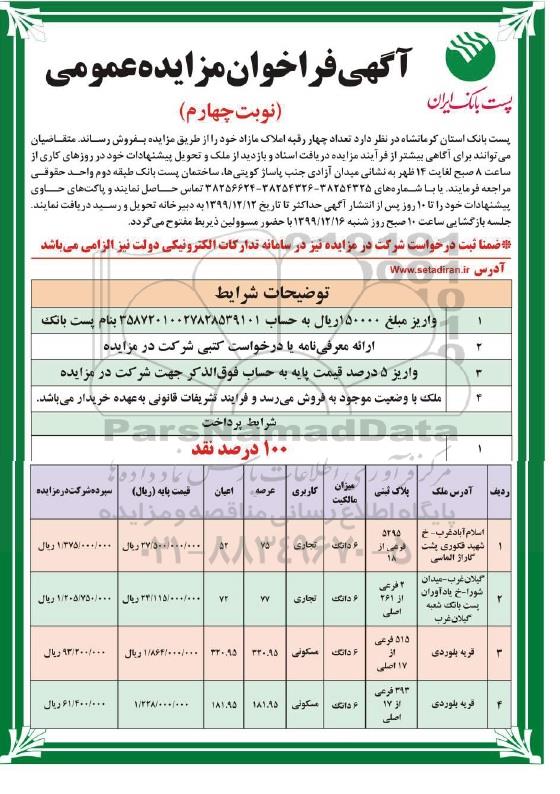 آگهی فراخوان مزایده عمومی
(نوبت چهارم)
پست بانک ایران
پست بانک استان کرمانشاه در نظر دارد تعداد چهار رقبه املاک مازاد خود را از طریق مزایده بفروش رساند. متقاضیان
می‌توانند برای آگاهی بیشتر از فرآیند مزایده دریافت اسناد و بازدید از ملک و تحویل پیشنهادات خود در روزهای کاری از
ساعت ۸ صبح لغایت ۱۴ ظهر به نشانی میدان آزادی جنب پاساژ کویتی‌ها، ساختمان پست بانک طبقه دوم واحد حقوقی
مراجعه فرمایند. یا با شماره‌های ۳۸۲۵۴۳۲۵-۳۸۲۵۴۳۲۶-۳۸۲۵۶۶۲۴ تماس حاصل نمایند و پاکت‌های حاوی
پیشنهادات خود را تا ۱۰ روز پس از انتشار آگهی حداکثر تا تاریخ ۱۳۹۹/۱۲/۱۲ به دبیرخانه تحویل و رسید دریافت نمایند.
جلسه بازگشایی ساعت ۱۰ صبح روز شنبه ۱۳۹۹/۱۲/۱۶ با حضور مسوولین ذیربط مفتوح می‌گردد.
*ضمنا ثبت درخواست شرکت در مزایده نیز در سامانه تدارکات الکترونیکی دولت نیز الزامی می‌باشد
آدرس Www.setadiran.ir
توضیحات شرایط
۱ واریز مبلغ ۱۵۰۰۰۰۰ ریال به حساب ۳۵۸۷۲۰۱۰۰۲۷۸۲۸۵۳۹۱۰۱ بنام پست بانک
۲ ارائه معرفی‌نامه یا درخواست کتبی شرکت در مزایده
۳ واریز ۵ درصد قیمت پایه به حساب فوق‌الذکر جهت شرکت در مزایده
۴ ملک با وضعیت موجود به فروش می‌رسد و فرایند تشریفات قانونی به‌عهده خریدار می‌باشد.
شرایط پرداخت
۱ ۱۰۰ درصد نقد
ردیف آدرس ملک پلاک ثبتی میزان مالکیت کاربری عرصه اعیان قیمت پایه (ریال) سپرده شرکت در مزایده
۱ اسلام‌آباد غرب- خ شهید فکوری پشت گاراژ الماسی ۵۲۹۵ فرعی از ۱۸ ۶ دانگ تجاری ۷۵ ۵۲ ۲۷/۵۰۰/۰۰۰/۰۰۰ ریال ۱/۳۷۵/۰۰۰/۰۰۰ ریال
۲ گیلان‌غرب-میدان شورا-خ یادآوران پست بانک شعبه گیلان‌غرب ۲ فرعی از ۲۶۱ اصلی ۶ دانگ تجاری ۷۷ ۷۲ ۲۴/۱۱۵/۰۰۰/۰۰۰ ریال ۱/۲۰۵/۷۵۰/۰۰۰ ریال
۳ قریه بلوردی ۵۱۵ فرعی از ۱۷ اصلی ۶ دانگ مسکونی ۳۲۰.۹۵ ۳۲۰.۹۵ ۱/۸۶۴/۰۰۰/۰۰۰ ریال ۹۳/۲۰۰/۰۰۰ ریال
۴ قریه بلوردی ۳۹۳ فرعی از ۱۷ اصلی ۶ دانگ مسکونی ۱۸۱.۹۵ ۱۸۱.۹۵ ۱/۲۲۸/۰۰۰/۰۰۰ ریال ۶۱/۴۰۰/۰۰۰ ریال
ParsNamadData
پایگاه اطلاع رسانی مناقصه و مزایده
۰۲۱-۸۸۳۴۹۶۷۰-۵